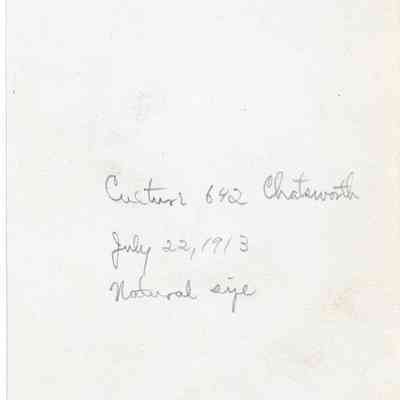 642 Chatsworth
July 22, 1913
Natural size